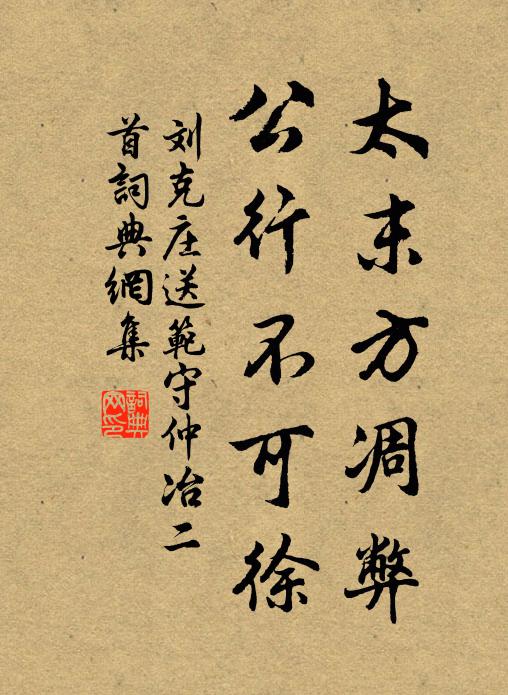 太末方凋弊
公行不可徐
刘克庄送範守仲冶二
首詞典網集
詞典
网印